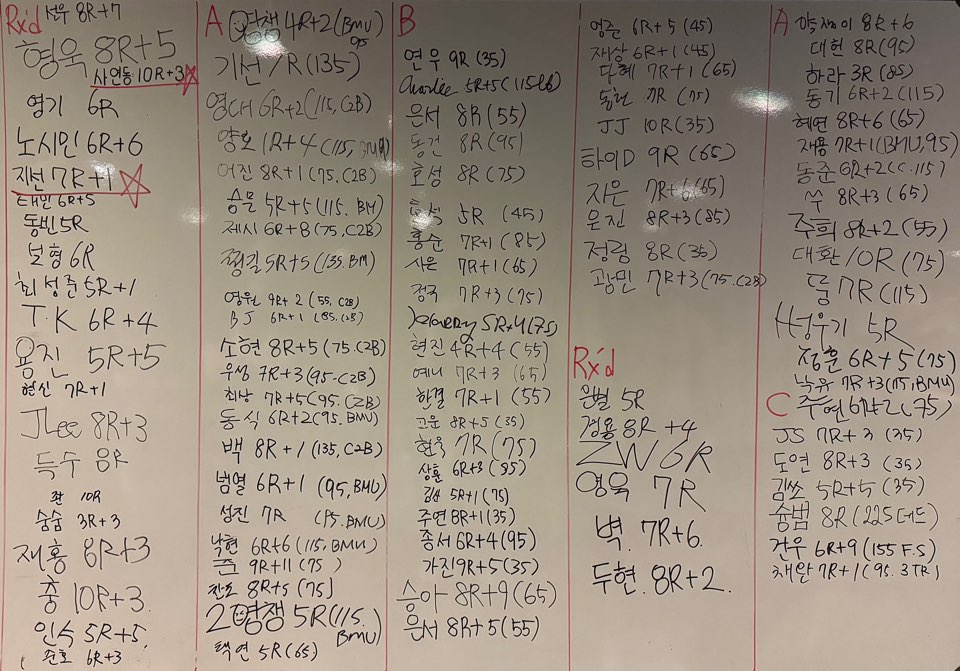 Rx'd 선우 8R+7
형욱 8R+5
사연동 10R+3☆
영기 6R
노시민 6R+6
지선 7R+1 ☆
태민 6R+5
동빈 5R
보형 6R
최성준 5R+1
T.K 6R+4
용진 5R+5
현신 7R+1
JLee 8R+3
득수 8R
좟 10R
숨숨 3R+3
재홍 8R+3
충 10R+3.
인숙 5R+5.
준호 6R+3
A
명쟁 4R+2(BMU)
95
기선 7R(135)
영대 6R+2(115,C2B)
양호 1R+4(115, BMU)
어진 8R+1(75.C2B)
승문 5R+5(115.BM)
제시 6R+8(75,C2B)
정길 5R+5(135.BM)
영원 9R+2(55.C2B)
BJ 6R+1(85.C2B)
소현 8R+5(75.C2B)
우성 7R+3(95.C2B)
최남 7R+5(95.C2B)
동식 6R+2(95.BMU)
백 8R+1(135,C2B)
범열 6R+1 (95,BMU)
성진 7R (95.BMU)
낙현 6R+6(115,BMU)
9R+11(75)
찬호 8R+5(75)
2명쟁 5R(115.
BMU)
택연 5R(65)
B
연우 9R(35)
Charlee 5R+5(115lb)
은서 8R(55)
동건 8R(95)
효성 8R(75)
5R (45)
홍순 7R+1(85)
사은 7R+1(65)
정국 7R+3(75)
Harry 5R+4(75)
현진 4R+4(55)
예니 7R+3(65)
한결 7R+1(55)
고운 8R+5(35)
현욱 7R(75)
상훈 6R+3(85)
김쏘 5R+1(75)
주연 8R+1(35)
종서 6R+4(95)
가진 9R+5(35)
승아 8R+9(65)
은서 8R+5(55)
영준 6R+5(45)
재상 6R+1(45)
다혜 7R+1(65)
7R(75)
JJ 10R(35)
하이D 9R(65)
지은 7R+6(65)
은진 8R+3(85)
정림 8R(35)
광민 7R+3(75.C2B)
Rx'd
은별 5R
경용 8R+4
ZW 6R
영욱 7R
벽. 7R+6.
두현. 8R+2.
A
깍쟁이 8R+6
대헌 8R(95)
하라 3R(85)
동기 6R+2(115)
혜연 8R+6(65)
재용 7R+1(BMU,95)
동준 6R+2(C.115)
쑤 8R+3(65)
주희 8R+2(55)
대환 10R(75)
들 7R(115)
H성우기 5R
정훈 6R+5(75)
낙유 7R+3(115,BMU)
C
주현 6R+2(75)
JS 7R+3(35)
도연 8R+3(35)
김쏘 5R+5(35)
숭범 8R(225데드)
건우 6R+9(155 F.S)
채완 7R+1(95.3TR)